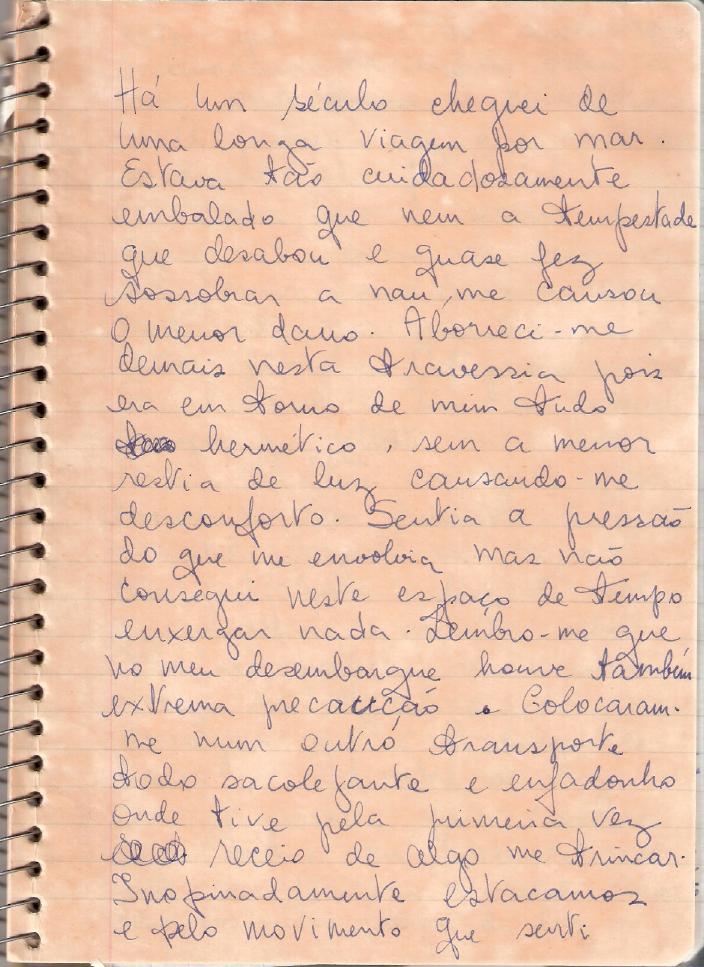 Há um século cheguei de
uma longa viagem por mar.
Estava tão cuidadosamente
embalado que nem a tempestade
que desabou e quase fez
sossobrar a nau, me causou
o menor dano. Aborreci-me
demais nesta travessia pois
era em torno de mim tudo
hermético, sem a menor
restia de luz causando-me
desconforto. Sentia a pressão
do que me envolvia mas não
consegui neste espaço de tempo
enxergar nada. Lembro-me que
no meu desembarque houve também
extrema precaução. Colocaram-
me num outro transporte
todo sacolejante e enfadonho
onde tive pela primeira vez
receio de algo me trincar.
Inopinadamente estacamos
e pelo movimento que senti